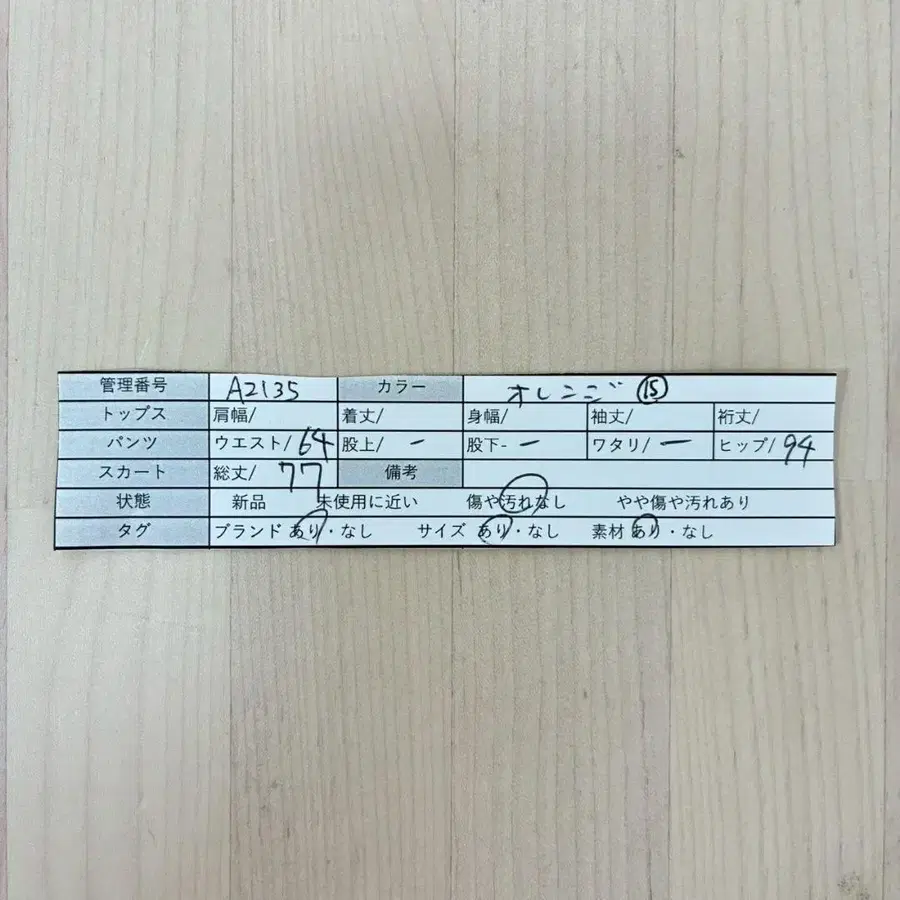 管理番号 A2135 カラー オレンジ ⑮
トップス 肩幅/ 着丈/ 身幅/ 袖丈/ 裄丈/
パンツ ウエスト/ 64 股上/ ー 股下- ー ワタリ/ ー ヒップ/ 94
スカート 総丈/ 77 備考
状態 新品 未使用に近い 傷や汚れなし やや傷や汚れあり
タグ ブランド あり・なし サイズ あり・なし 素材 あり・なし